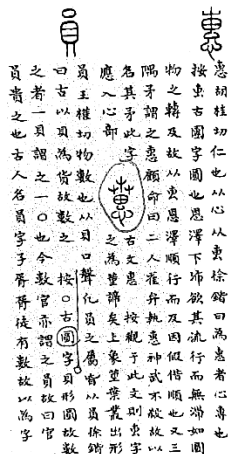 惠胡桂切仁也从心从叀徐鍇曰為惠者心專也
按叀古圜字圜也恩澤下沛欲其流行而無滯如圜
物之轉及故以叀恩澤順行而及因假借順也又三
隅矛謂之惠顧命曰二人雀弁執惠神武不殺故以
名其矛此字 古文惠 按觀于此文則叀字
應入心部 之為 諦矣上象 葉叢出形
員王權切物數也从貝口聲凡員之屬皆从員徐鍇
曰古以貝為貨故數之 按○古圓字貝形圜故數
之者一貝謂之一○也今數官亦謂之員故曰官
員責之也古人名員字子胥胥徒有數故以為字